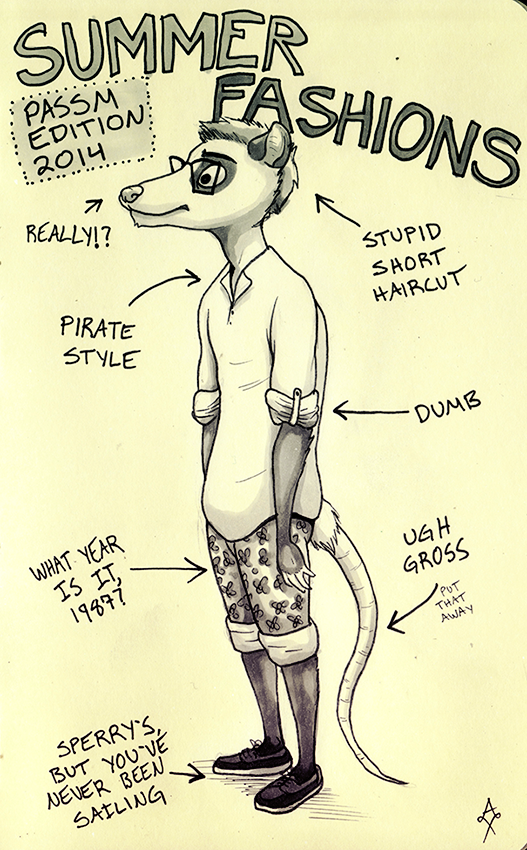 SUMMER
FASHIONS
PASSM
EDITION
2014
REALLY!?
STUPID
SHORT
HAIRCUT
PIRATE
STYLE
DUMB
WHAT YEAR
IS IT,
1987?
UGH
GROSS
PUT
THAT
AWAY
SPERRY'S,
BUT YOU'VE
NEVER BEEN
SAILING